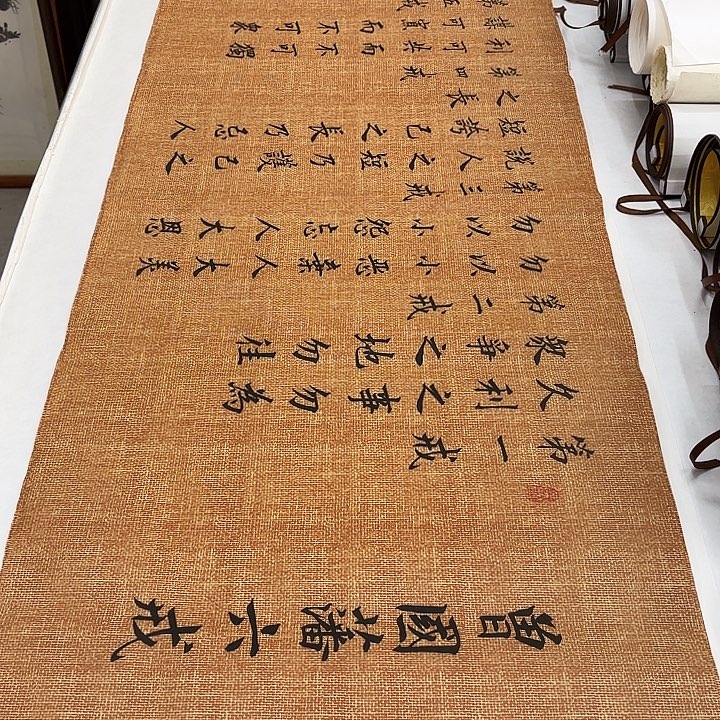 曾國藩六戒
第一戒
久利之事勿為
衆爭之地勿往
第二戒
勿以小惡棄人大美
勿以小怨忘人大恩
第三戒
說人之短乃護己之
短誇己之長乃忌人
之長
第四戒
利可共而不可獨
謀可寡而不可衆
第五戒